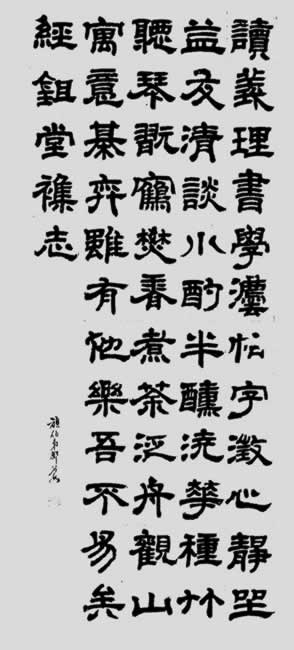 讀義理書學灋帖字澂心靜坐
益友清談小酌半醺澆華種竹
聽琴翫鶴焚香煮茶泛舟觀山
寓意棊弈雖有他樂吾不易矣
經鉏堂襍志